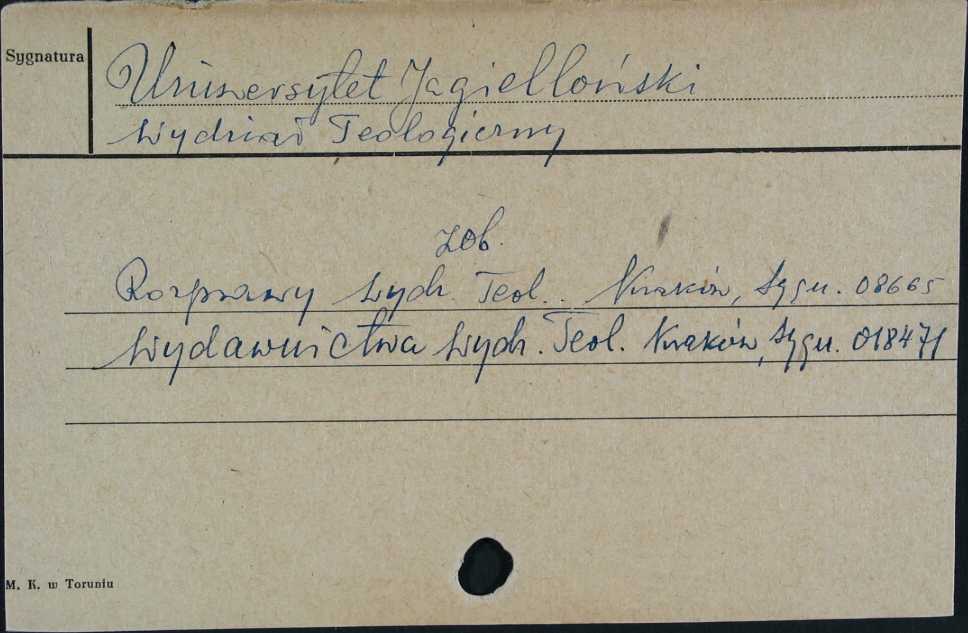 Sygnatura
Uniwersytet Jagielloński
Wydział Teologiczny
zob.
Rozprawy Wydz. Teol. Kraków, Sygn. 08665
Wydawnictwa Wydz. Teol. Kraków, Sygn. 018471
M. K. w Toruniu